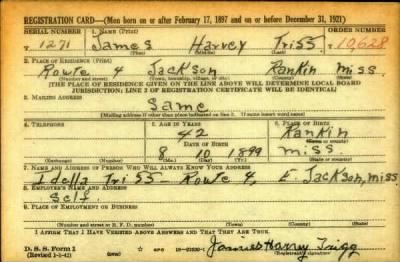 REGISTRATION CARD—(Men born on or after February 17, 1897 and on or before December 31, 1921)
SERIAL NUMBER 1. NAME (Print) ORDER NUMBER
T 1271 James Harvey Triss T10,628
(First) (Middle) (Last)
2. PLACE OF RESIDENCE (Print)
Route 4 Jackson Rankin Miss.
(Number and street) (Town, township, village, or city) (County) (State)
[THE PLACE OF RESIDENCE GIVEN ON THE LINE ABOVE WILL DETERMINE LOCAL BOARD
JURISDICTION; LINE 2 OF REGISTRATION CERTIFICATE WILL BE IDENTICAL]
3. MAILING ADDRESS
Same
[Mailing address if other than place indicated on line 2. If same insert word same]
4. TELEPHONE 5. AGE IN YEARS 6. PLACE OF BIRTH
42 Rankin
DATE OF BIRTH (Town or county)
8 10 1899 Miss.
(Exchange) (Number) (Mo.) (Day) (Yr.) (State or country)
7. NAME AND ADDRESS OF PERSON WHO WILL ALWAYS KNOW YOUR ADDRESS
Idella Triss - Route 4, E. Jackson, Miss
8. EMPLOYER'S NAME AND ADDRESS
Self
9. PLACE OF EMPLOYMENT OR BUSINESS
(Number and street or R. F. D. number) (Town) (County) (State)
I AFFIRM THAT I HAVE VERIFIED ABOVE ANSWERS AND THAT THEY ARE TRUE.
D. S. S. Form 1
(Revised 1-3-42) (over) James Harvey Trigg
(Registrant's signature)